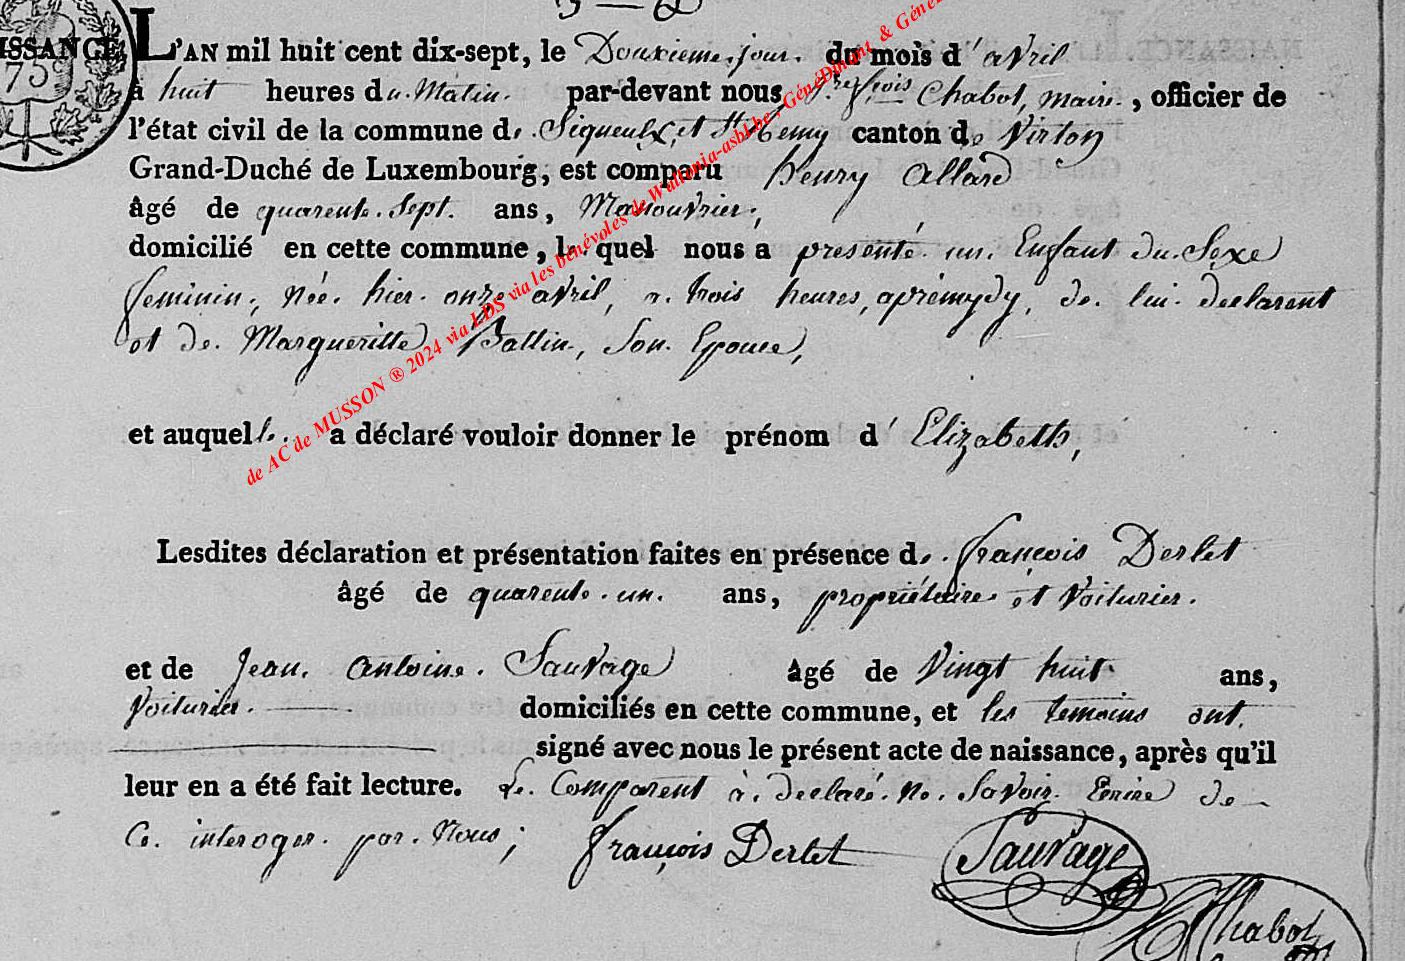 ISSANCE
75
L'AN mil huit cent dix-sept, le Douzieme jour du mois d'avril
à huit heures du Matin par-devant nous Chabot, maire, officier de
l'état civil de la commune de Signeulx et St Remy canton de Virton
Grand-Duché de Luxembourg, est comparu henry allard
âgé de quarente Sept ans, Manouvrier,
domicilié en cette commune, lequel nous a presenté un Enfant du Sexe
feminin, née hier onze avril, a trois heures, aprèmydy, de lui declarent
et de Margueritte Ballin, Son Epouse,
et auquelle a déclaré vouloir donner le prénom d'Elizabeth,
Lesdites déclaration et présentation faites en présence de françois Derlet
âgé de quarente un ans, propriétaire et Voiturier.
et de Jean antoine Sauvage âgé de Vingt huit ans,
Voiturier domiciliés en cette commune, et les temoins ont
signé avec nous le présent acte de naissance, après qu'il
leur en a été fait lecture. Le Comparent à declaré ne Savoir Ecrire de
Ce interoger par Nous; françois Derlet Sauvage
Chabot
de AC de MUSSON ® 2024 via LDS via les bénévoles de Wallonia-asbl.be, GénéDinant & Géné